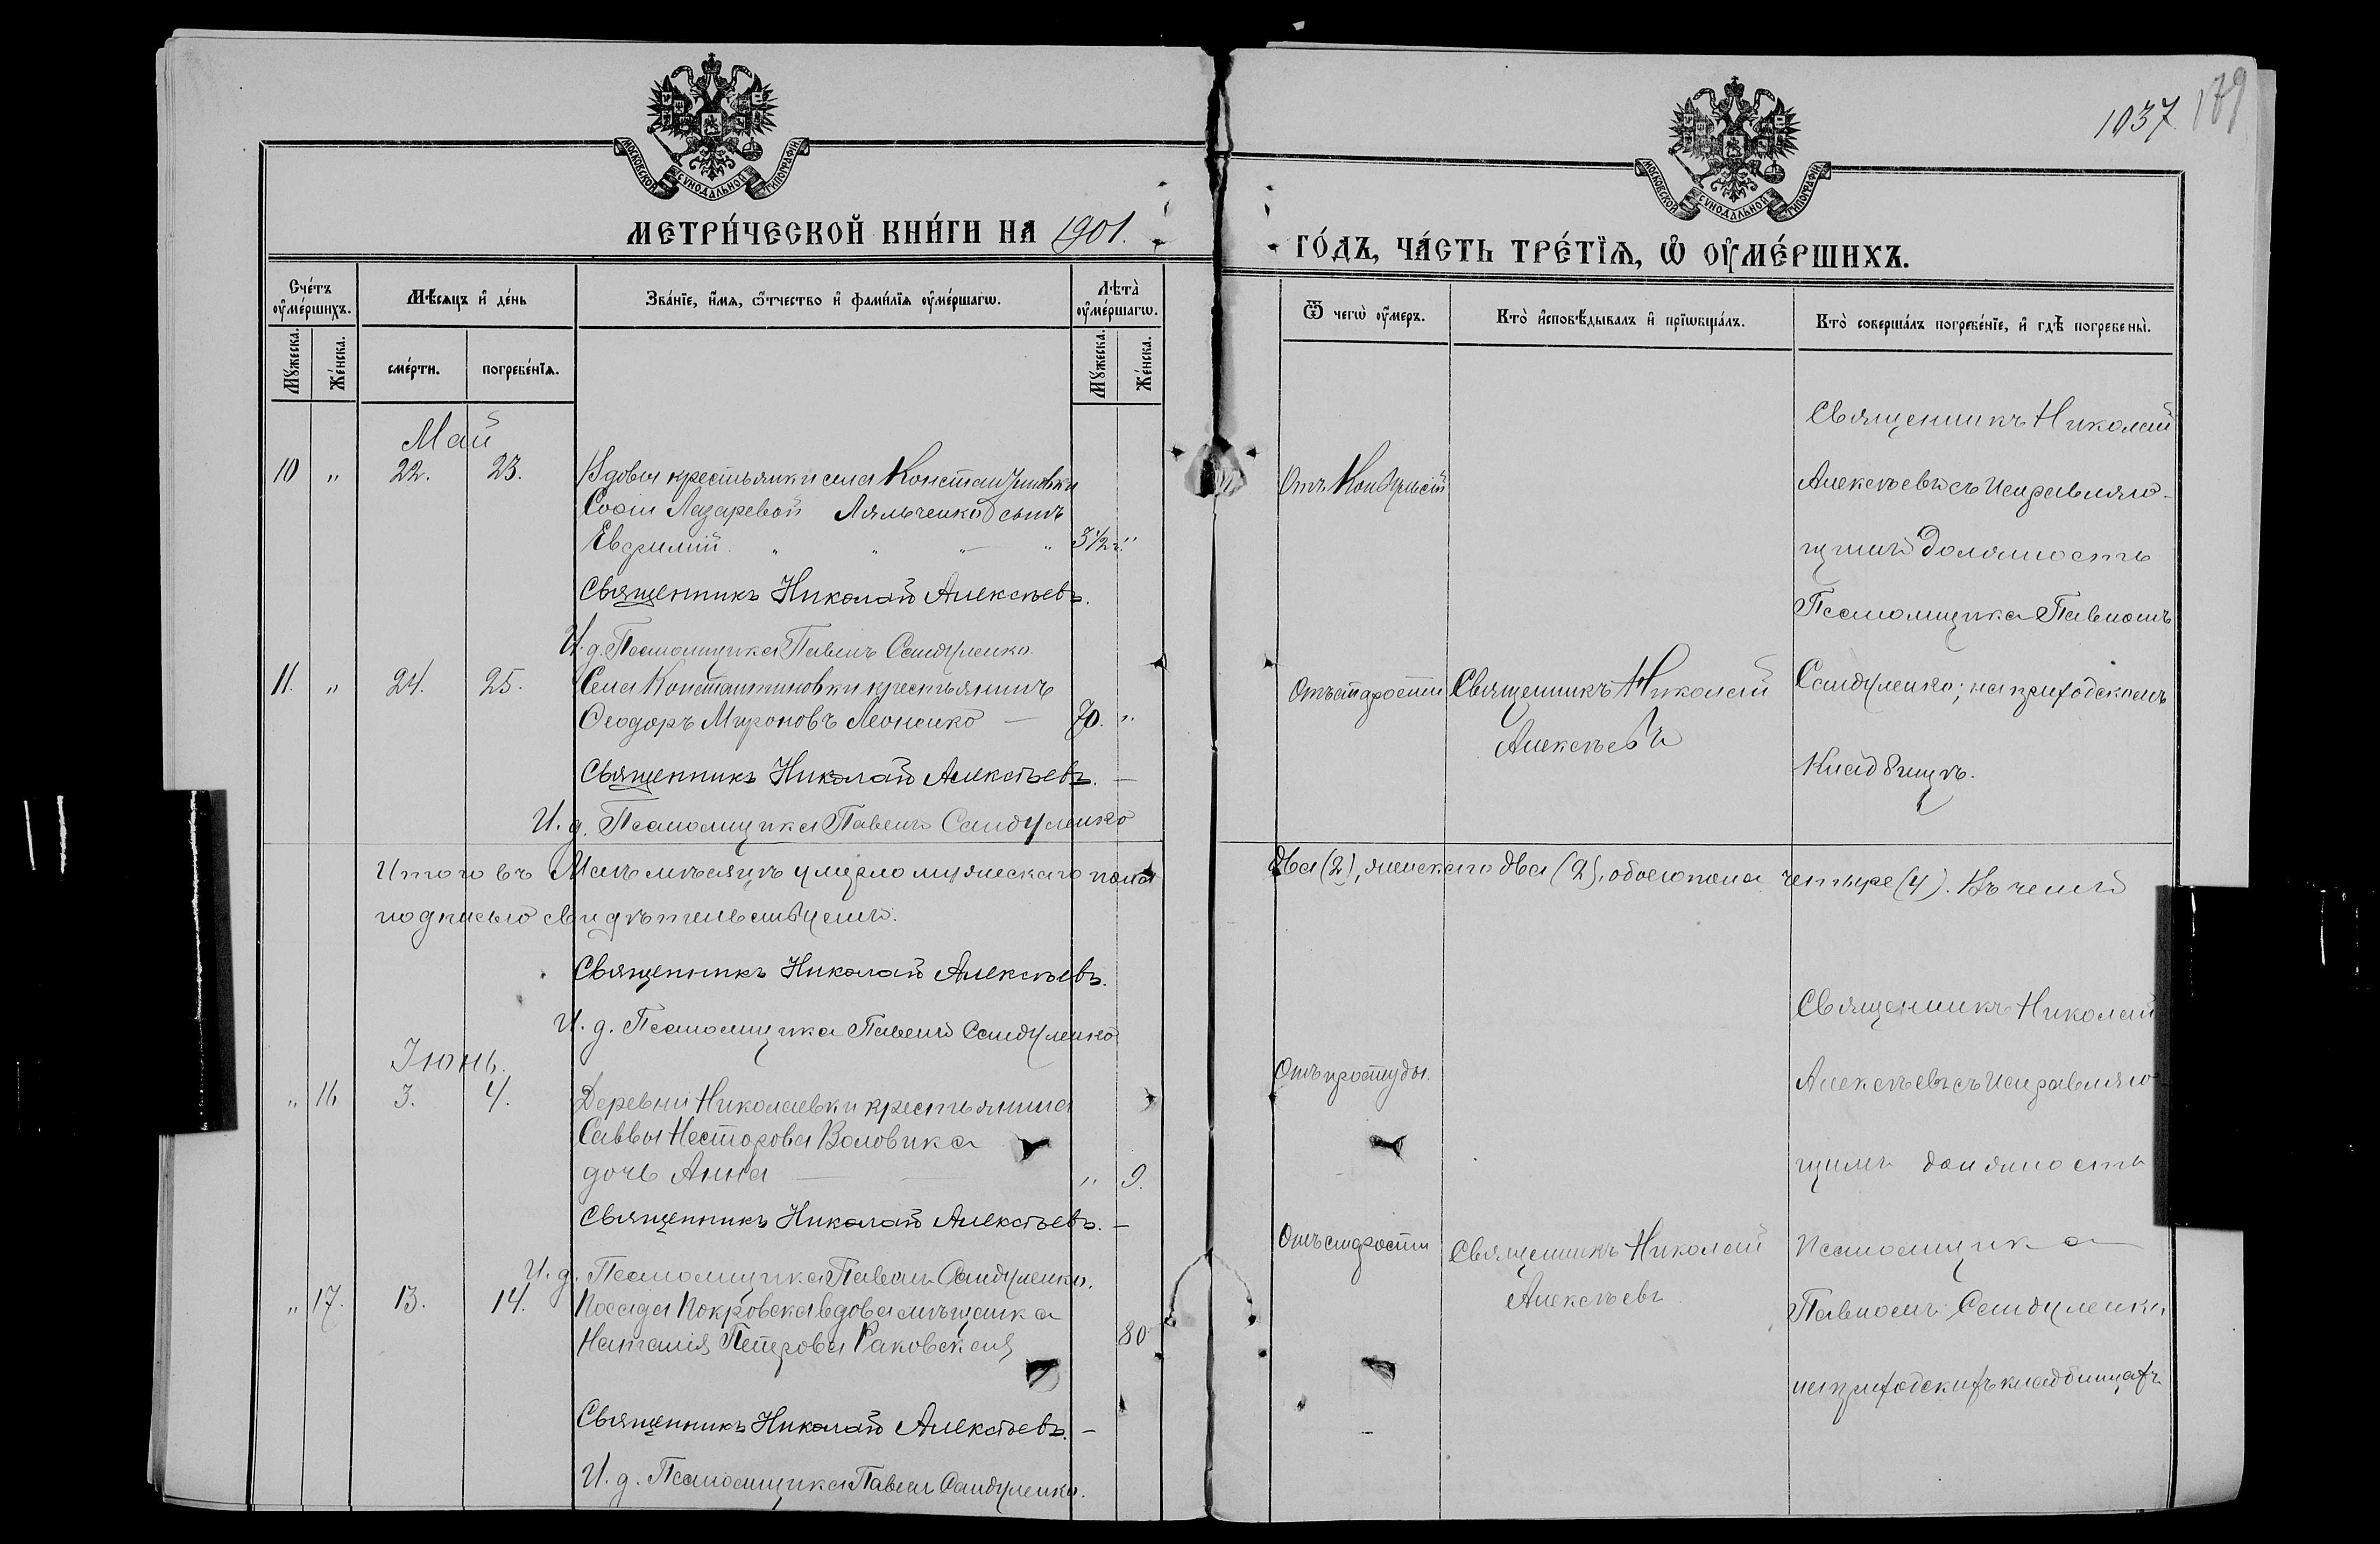 1037 179
МОСКОВСКОЙ СѴНОДАЛЬНОЙ ТИПОГРАФІИ
МОСКОВСКОЙ СѴНОДАЛЬНОЙ ТИПОГРАФІИ
МЕТРИ́ЧЕСКОЙ КНИ́ГИ НА 1901.
ГО́ДЪ, ЧА́СТЬ ТРЕ́ТЇѦ, Ѡ҆ ОУ҆МЕ́РШИХЪ.
Сче́тъ оу҆ме́ршихъ.
Мѣ́сяцъ и҆ де́нь
Зва́нїе, и҆́мѧ, ѻ҆́тчество и҆ фами́лїѧ оу҆ме́ршагѡ.
Лѣта̀ оу҆ме́ршагѡ.
Ѿ чегѡ̀ оу҆́меръ.
Кто̀ и҆сповѣ́дывалъ и҆ прїѡбща́лъ.
Кто̀ соверша́лъ погребе́нїе, и҆ гдѣ̀ погребены̀.
Му́жеска. Же́нска. сме́рти. погребе́нїѧ. Му́жеска. Же́нска.
Май
10 „ 22. 23. Вдовы крестьянки села Константиновки
Софіи Лазаревой Ляльченко сынъ
Евфимій „ „ „ „ 3½ г. „
Священникъ Николай Алексѣевъ.
И. д. Псаломщика Павелъ Сандуленко.
Отъ Конвульсій
Священникъ Николай
Алексѣевъ съ исправляю-
щимъ должность
Псаломщика Павломъ
Сандуленко; на приходскомъ
Кладбищѣ.
11. „ 24. 25. Села Константиновки крестьянинъ
Ѳеодоръ Мироновъ Леонско — 70. „
Священникъ Николай Алексѣевъ. —
И. д. Псаломщика Павелъ Сандуленко
Отъ старости Священникъ Николай
Алексѣевъ
Итого въ Маѣ мѣсяцѣ умерло мужескаго пола два (2), женскаго два (2), обоего пола четыре (4). Въ чемъ
подписью свидѣтельствуемъ.
Священникъ Николай Алексѣевъ.
И. д. Псаломщика Павелъ Сандуленко
Іюнь.
„ 16 3. 4. Деревни Николаевки крестьянина
Саввы Несторова Воловика
дочь Анна — — „ 9.
Священникъ Николай Алексѣевъ. —
И. д. Псаломщика Павелъ Сандуленко.
Отъ простуды.
Священникъ Николай
Алексѣевъ съ исправляю
щимъ должность
псаломщика
Павломъ Сандуленко
на приходскихъ кладбищахъ
„ 17. 13. 14. Посада Покровска вдова мѣщанка
Наталія Петрова Раковская 80.
Священникъ Николай Алексѣевъ. —
И. д. Псаломщика Павелъ Сандуленко.
Отъ старости Священникъ Николай
Алексѣевъ